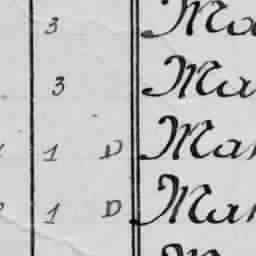 3 Ma
3 Ma
1 D Mar
1 D Mar